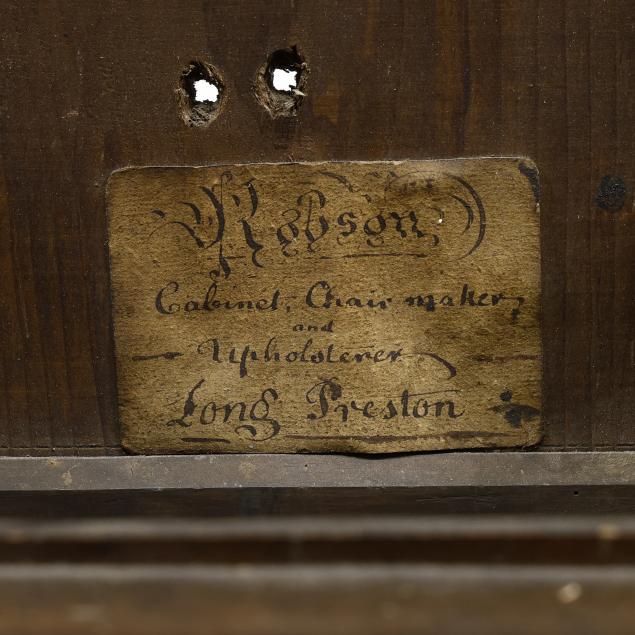 Robson,
Cabinet, Chair maker,
and
Upholsterer
Long Preston